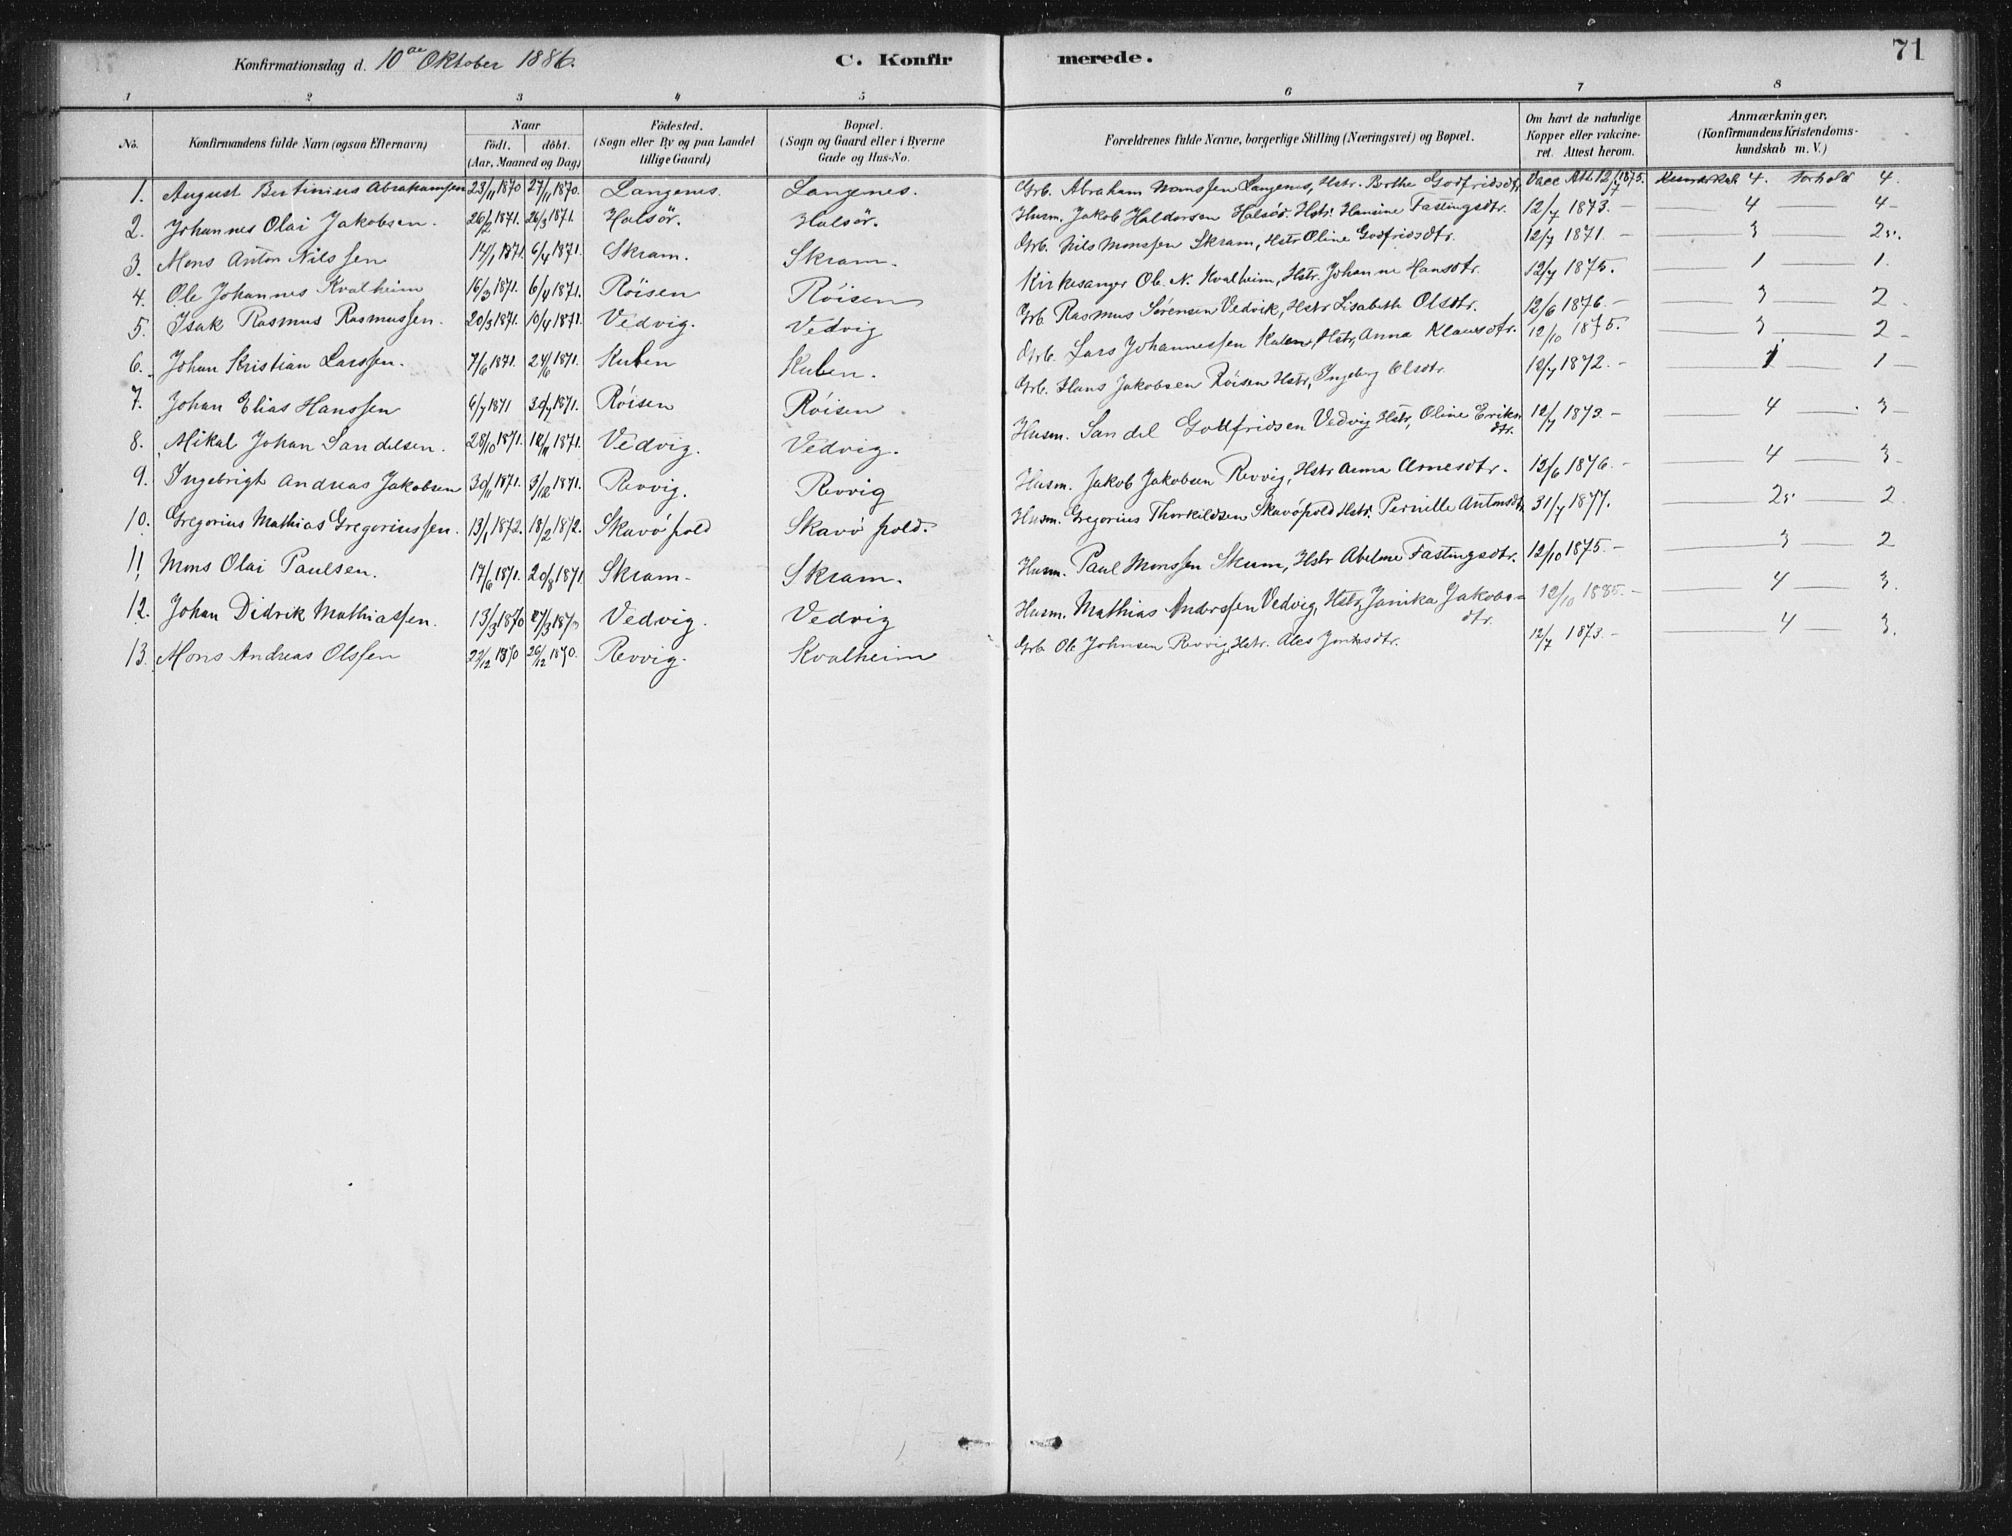 Konfirmationsdag d. 10de Oktober 1886. C. Konfirmerede. 71
1 2 3 4 5 6 7 8
No. Konfirmandens fulde Navn (ogsaa Efternavn) Naar födt. döbt. (Aar, Maaned og Dag) Födested. (Sogn eller By og paa Landet tillige Gaard) Bopæl. (Sogn og Gaard eller i Byerne Gade og Hus-No. Forældrenes fulde Navne, borgerlige Stilling (Næringsvei) og Bopæl. Om havt de naturlige Kopper eller vakcineret. Attest herom. Anmærkninger. (Konfirmandens Kristendomskundskab m. V.)
1. August Bertinius Abrahamsen 23/11 1870 27/11 1870. Langenes. Langenes. Grb. Abraham Monssen Langenes, Hstr. Berthe Godfridsdtr. Vacc Att. 12/7 1875. Kundskab 4. Forhold 4.
2. Johannes Olai Jakobsen. 26/2 1871. 26/3 1871. Halsör. Halsör. Husm. Jakob Haldorsen Halsör. Hstr. Hansine Fastingsdtr. 12/7 1873. — 4 — 4 —
3. Mons Anton Nilssen 14/1 1871. 6/4 1871. Skram. Skram. Grb. Nils Monssen Skram, Hstr Oline Godfridsdtr. 12/7 1871. — 3 — 2
4. Ole Johannes Kvalheim 16/3 1871. 6/4 1871. Röisen Röisen Kirkesanger Ole N. Kvalheim, Hstr. Johanne Hansdtr. 12/7 1875. — 1 — 1.
5. Isak Rasmus Rasmussen. 20/3 1871. 10/4 1871. Vedvig. Vedvig Grb. Rasmus Sørensen Vedvik, Hstr Lisabeth Olsdtr. 12/6 1876. — 3 — 2.
6. Johan Kristian Larssen. 7/6 1871. 24/6 1871. Kulen Kulen. Grb. Lars Johannessen Kulen, Hstr, Anna Klausdtr. 12/10 1875. — 3 — 2 —
7. Johan Elias Hanssen 6/7 1871 30/7 1871. Röisen Röisen. Grb. Hans Jakobsen Röisen Hstr, Ingeborg Olsdtr. 12/7 1872. — 1 — 1 —
8. Mikal Johan Sandelsen. 28/10 1871. 12/11 1871. Vedvig. Vedvig. Husm. Sandel Gottfridsen Vedvig Hstr, Oline Eriksdtr. 12/7 1873. — 4 — 3 —
9. Ingebrigt Andreas Jakobsen 30/11 1871. 3/12 1871. Revvig. Revvig Husm. Jakob Jakobsen Revvig, Hstr Anna Arnesdtr. 12/6 1876. — 4 — 3 —
10. Gregorius Mathias Gregoriussen. 13/1 1872. 18/2 1872. Skavöpold Skavöpold. Husm. Gregorius Thorkildsen Skavöpold Hstr. Pernille Antonsdtr. 31/7 1877. 2 — 2
11. Mons Olai Paulsen. 17/6 1871. 20/8 1871 Skram. Skram. Husm. Paul Monssen Skram, Hstr Abelone Fastingsdtr. 12/10 1875. — 3 — 2
12. Johan Didrik Mathiassen. 13/3 1870 27/3 1870 Vedvig. Vedvig Husm. Mathias Anderssen Vedvig, Hstr, Janika Jakobsdtr. 12/10 1885. — 4 — 3.
13. Mons Andreas Olssen 22/12 1870 26/12 1870. Revvig. Kvalheim Grb. Ole Johnsen Revvig, Hstr. Ales Jontasdtr. 12/7 1873. — 4 — 3.